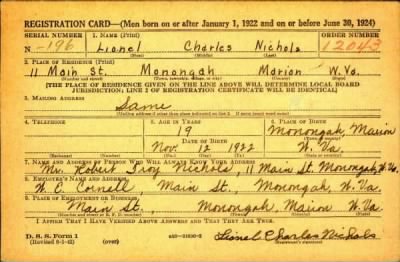 REGISTRATION CARD—(Men born on or after January 1, 1922 and on or before June 30, 1924)
SERIAL NUMBER 1. NAME (Print) ORDER NUMBER
N -196 Lionel Charles Nichols 12043
(First) (Middle) (Last)
2. PLACE OF RESIDENCE (Print)
11 Main St. Monongah Marion W. Va.
(Number and street) (Town, township, village, or city) (County) (State)
[THE PLACE OF RESIDENCE GIVEN ON THE LINE ABOVE WILL DETERMINE LOCAL BOARD
JURISDICTION; LINE 2 OF REGISTRATION CERTIFICATE WILL BE IDENTICAL]
3. MAILING ADDRESS
Same
4. TELEPHONE 5. AGE IN YEARS 6. PLACE OF BIRTH
19 Monongah, Marion
DATE OF BIRTH
Nov. 12 1922 W. Va.
7. NAME AND ADDRESS OF PERSON WHO WILL ALWAYS KNOW YOUR ADDRESS
Mr. Robert Troy Nichols, 11 Main St. Monongah, W. Va.
8. EMPLOYER'S NAME AND ADDRESS
W. E. Cornell, Main St., Monongah, W. Va.
9. PLACE OF EMPLOYMENT OR BUSINESS
Main St., Monongah, Marion W. Va.
I AFFIRM THAT I HAVE VERIFIED ABOVE ANSWERS AND THAT THEY ARE TRUE.
D. S. S. Form 1
(Revised 6-1-42) (over) Lionel Charles Nichols